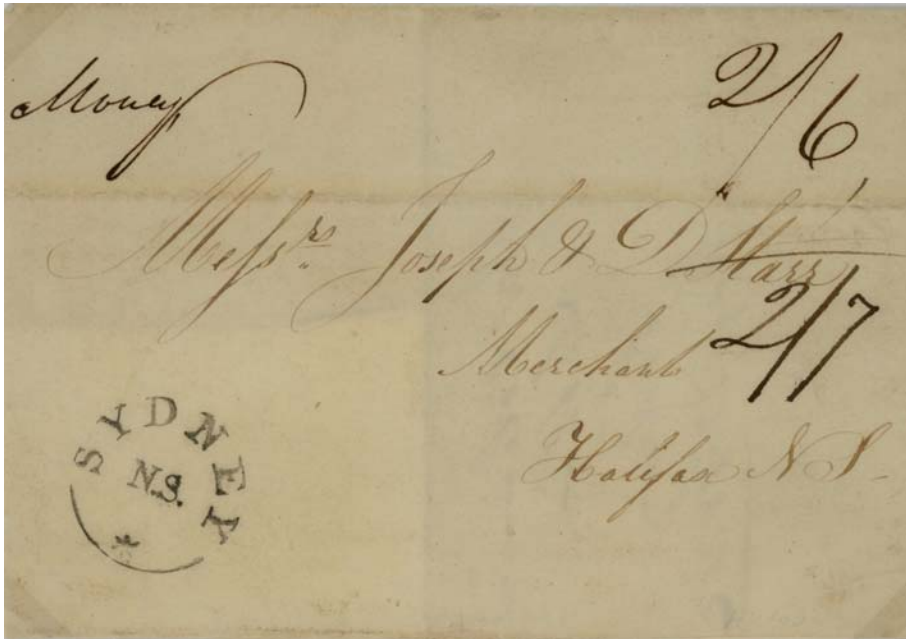 Money
2/6
Messrs. Joseph & D Starr
Merchant 2/7
Halifax N S
SYDNEY
N.S.